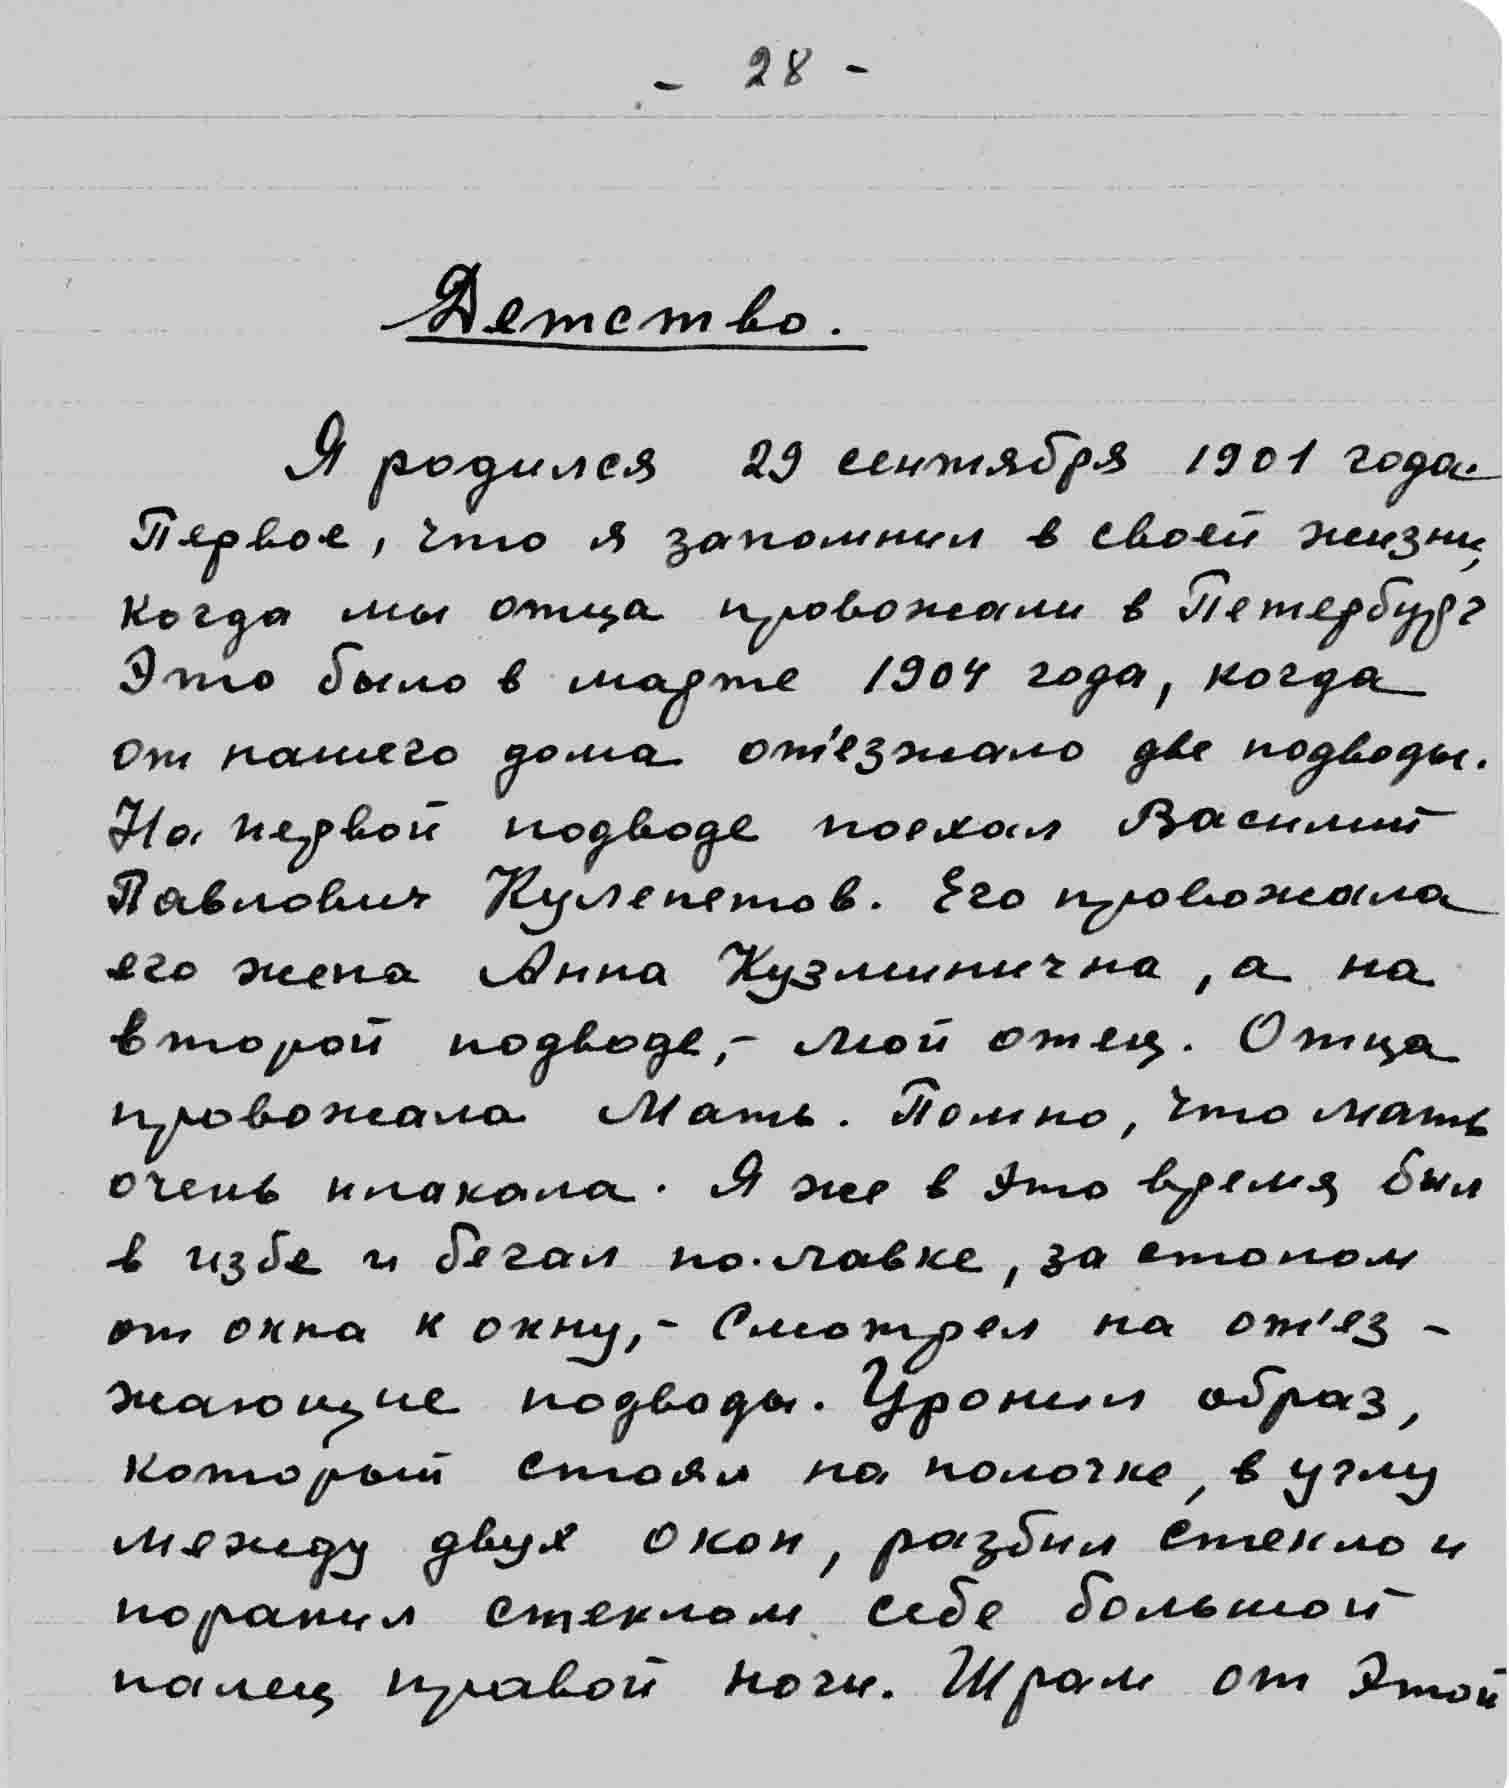 - 28 -
Детство.
Я родился 29 сентября 1901 года.
Первое, что я запомнил в своей жизни,
когда мы отца провожали в Петербург
Это было в марте 1904 года, когда
от нашего дома от'езжало две подводы.
На первой подводе поехал Василий
Павлович Кулепетов. Его провожала
его жена Анна Кузминична, а на
второй подводе, - мой отец. Отца
провожала Мать. Помню, что мать
очень плакала. Я же в это время был
в избе и бегал по лавке, за столом
от окна к окну, - Смотрел на от'ез-
жающие подводы. Уронил образ,
который стоял на полочке, в углу
между двух окон, разбил стекло и
поранил стеклом себе большой
палец правой ноги. Шрам от этой